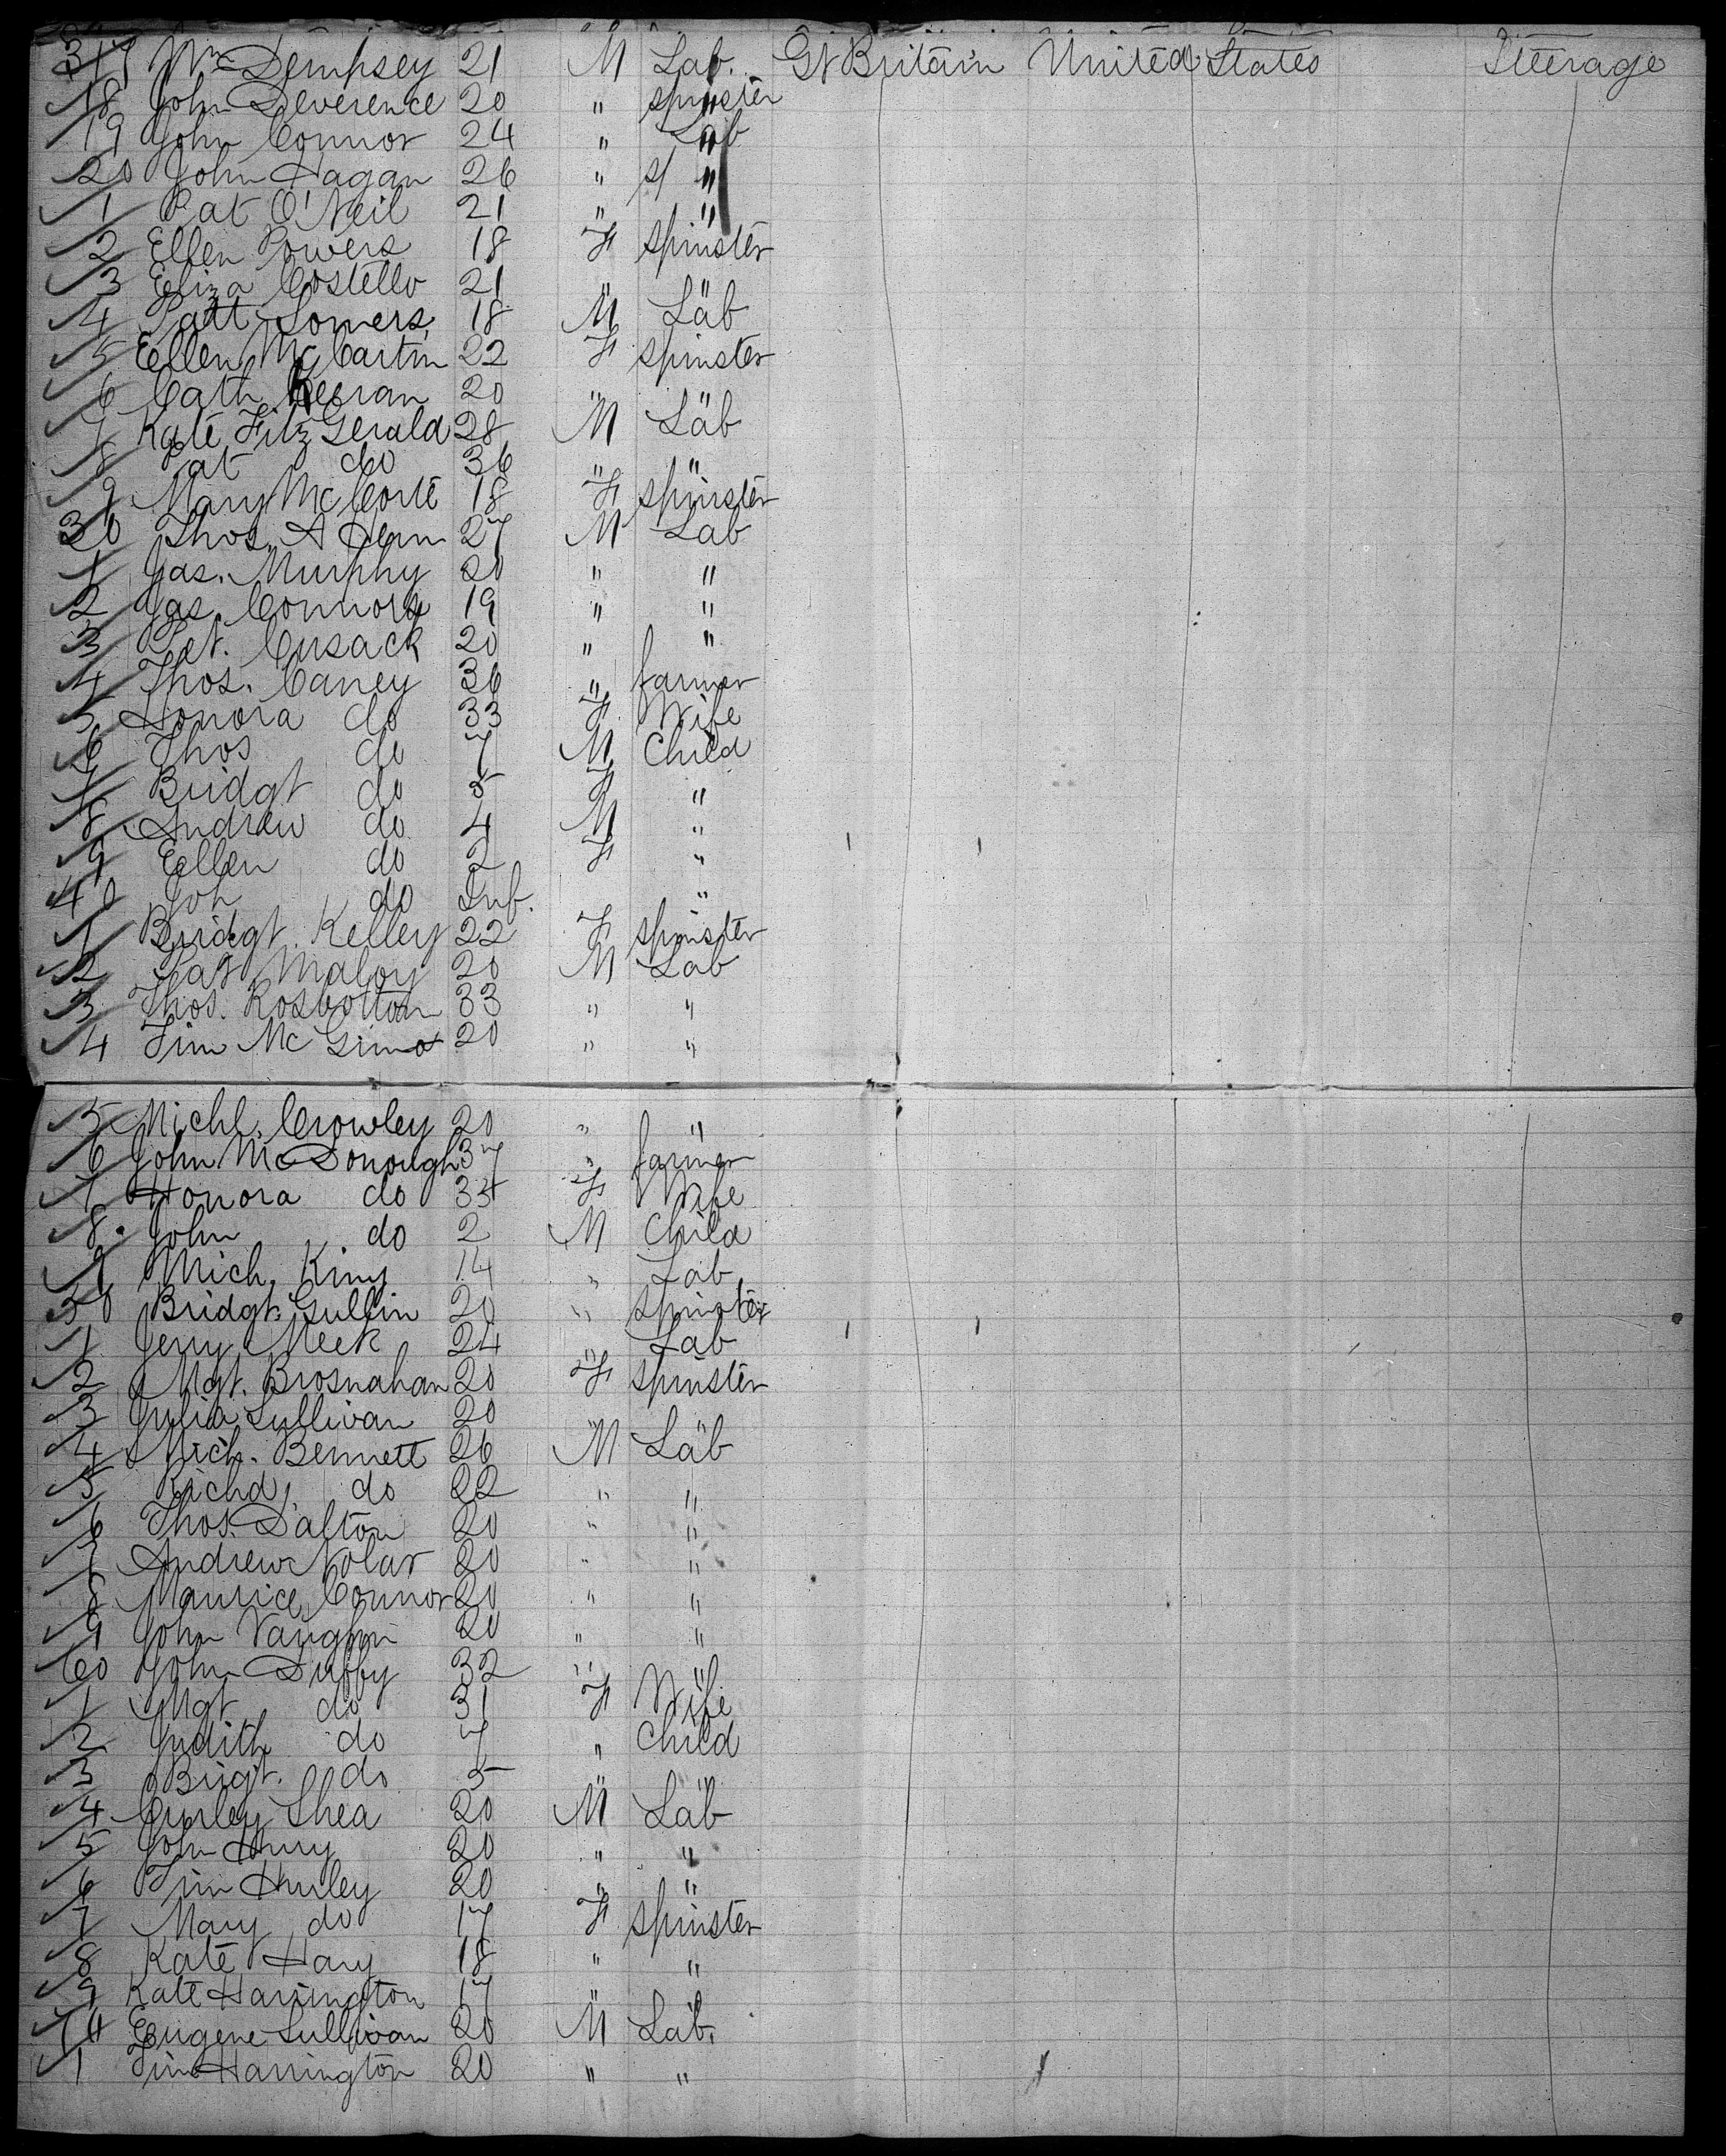 317 Wm Dempsey 21 M Lab. Gt Britain United States Steerage
18 John Deverence 20 " spinster "
19 John Connor 24 " Lab "
20 John Hagan 26 " s/ "
1 Pat O'Neil 21 " "
2 Ellen Powers 18 F spinster
3 Eliza Costello 21 " "
4 Patt Somers 18 M Lab
5 Ellen McCartin 22 F spinster
6 Cath Keeran 20 " "
7 Kate FitzGerald 28 M Lab
8 Pat do 36 " "
9 Mary McCorte 18 F spinster
30 Thos. A Hern 27 M Lab
1 Jas. Murphy 20 " "
2 Jas. Connors 19 " "
3 Pet. Cusack 20 " "
4 Thos. Caney 36 " farmer
5 Honora do 33 F Wife
6 Thos do 7 M Child
7 Bridgt do 5 F "
8 Andrew do 4 M "
9 Ellen do 2 F "
40 Joh do Inf. "
1 Bridgt. Kelley 22 F spinster
2 Pat Maloy 20 M Lab
3 Thos. Rosbottom 33 " "
4 Jim Mc 20 " "
5 Michl. Crowley 20 " "
6 John McDonough 37 " farmer
7 Honora do 35 F Wife
8 John do 2 M Child
9 Mich. King 14 " Lab
50 Bridgt. Gullin 20 " spinster
1 Jerry Meek 24 " Lab
2 Mgt. Brosnahan 20 F spinster
3 Julia Sullivan 20 " "
4 Mich. Bennett 26 M Lab
5 Richd. do 22 " "
6 Thos. Dalton 20 " "
7 Andrew Nolar 20 " "
8 Maurice Connor 20 " "
9 John Vaughn 20 " "
60 John Duffy 32 " "
1 Mgt do 31 F Wife
2 Judith do 7 " Child
3 Brigt. do 5 " "
4 Curley Shea 20 M Lab
5 John Hury 20 " "
6 Tim Hurley 20 " "
7 Mary do 17 F spinster
8 Kate Hary 18 " "
9 Kate Harrington 17 " "
70 Eugene Sullivan 20 M Lab.
1 Tim Harrington 20 " "